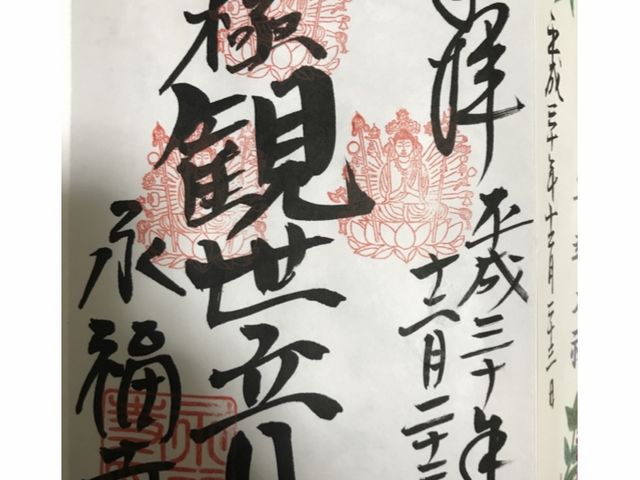 拝
平成三十年
十二月二十三
極
観世音
永福寺
平成三十年十二月二十三日